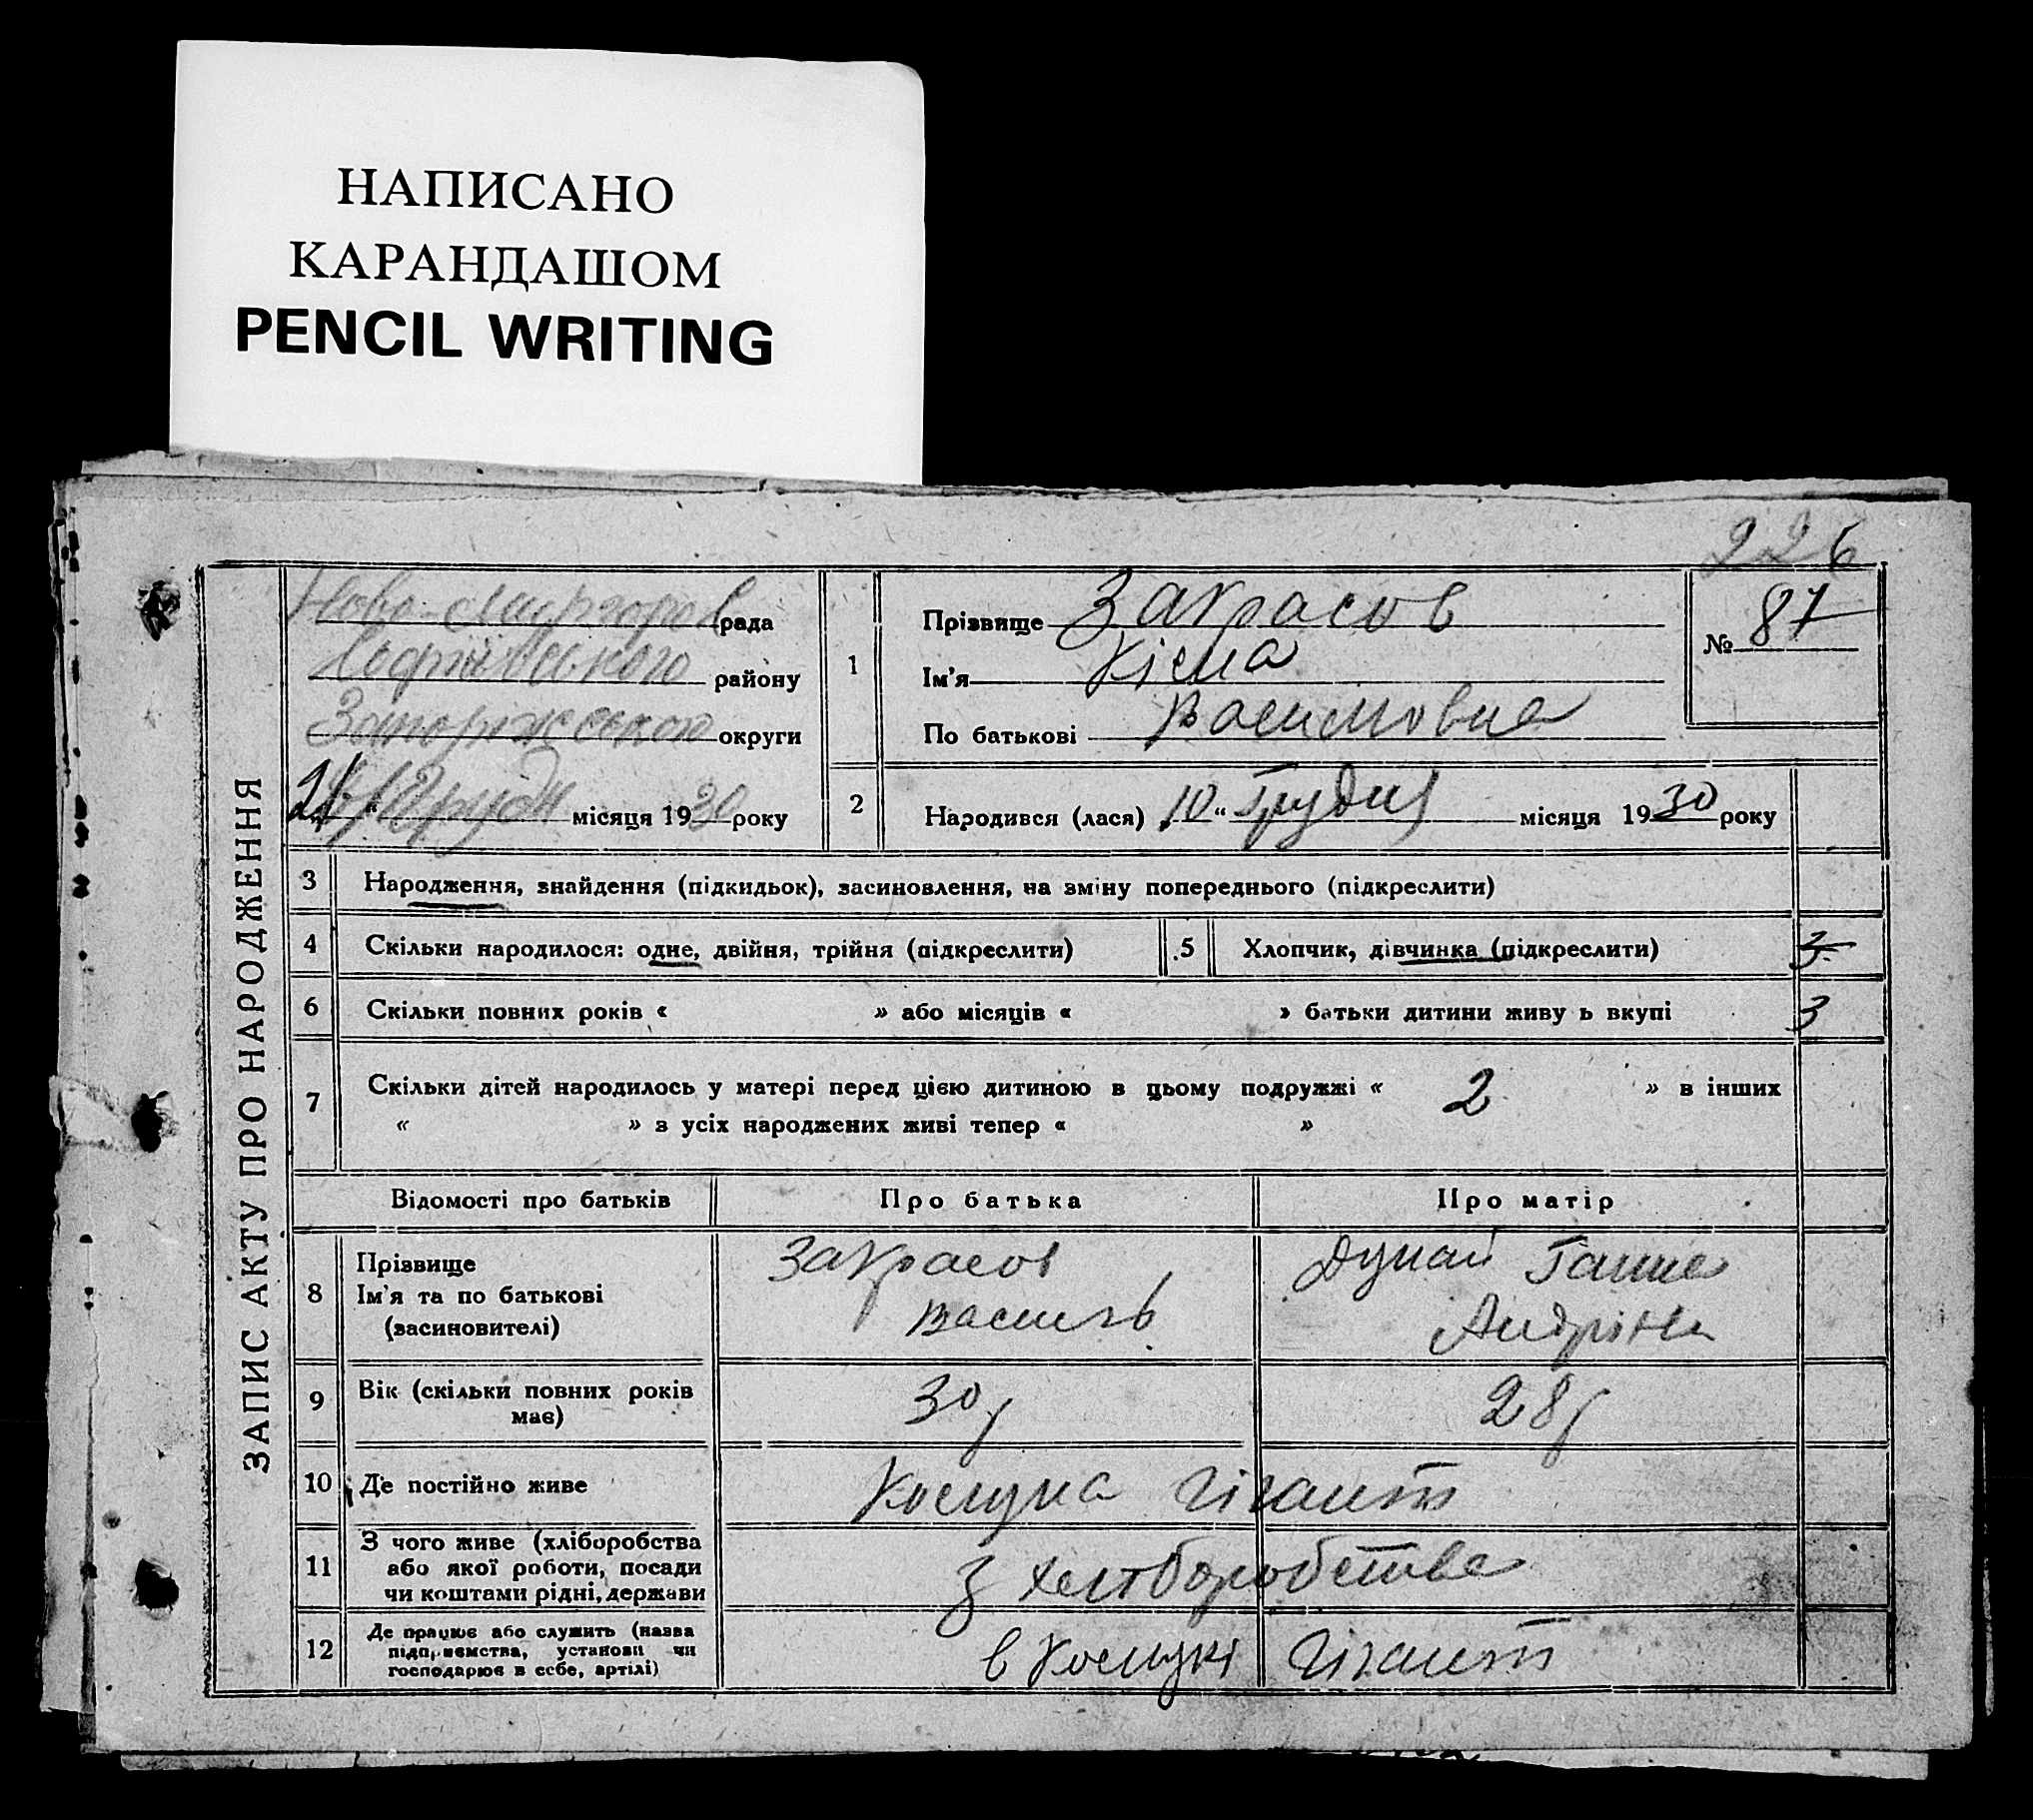 НАПИСАНО
КАРАНДАШОМ
PENCIL WRITING
226
ЗАПИС АКТУ ПРО НАРОДЖЕННЯ
рада
району
Запоріжської округи
21 Грудн місяця 1930 року
1
Прізвище Закрасов
Ім'я Кіма
По батькові Василовна
№ 87
2
Народився (лася) „10“ Грудня місяця 1930 року
3 Народження, знайдення (підкидьок), засиновлення, на зміну попереднього (підкреслити)
4 Скільки народилося: одне, двійня, трійня (підкреслити)
5 Хлопчик, дівчинка (підкреслити)
6 Скільки повних років « » або місяців « » батьки дитини живу ь вкупі
3
7 Скільки дітей народилось у матері перед цією дитиною в цьому подружжі « 2 » в інших
« » з усіх народжених живі тепер « »
Відомості про батьків Про батька Про матір
8
Прізвище
Ім'я та по батькові
(засиновителі)
Закрасов
Василь
Дунай Ганна
9 Вік (скільки повних років
має)
30р 28р
10 Де постійно живе
Комуна Гігант
11
З чого живе (хліборобства
або якої роботи, посади
чи коштами рідні, держави
З хлтборобства
12
Де працює або служить (назва
підприємства, установи чи
господарює в себе, артілі)
в Комуні Гігант